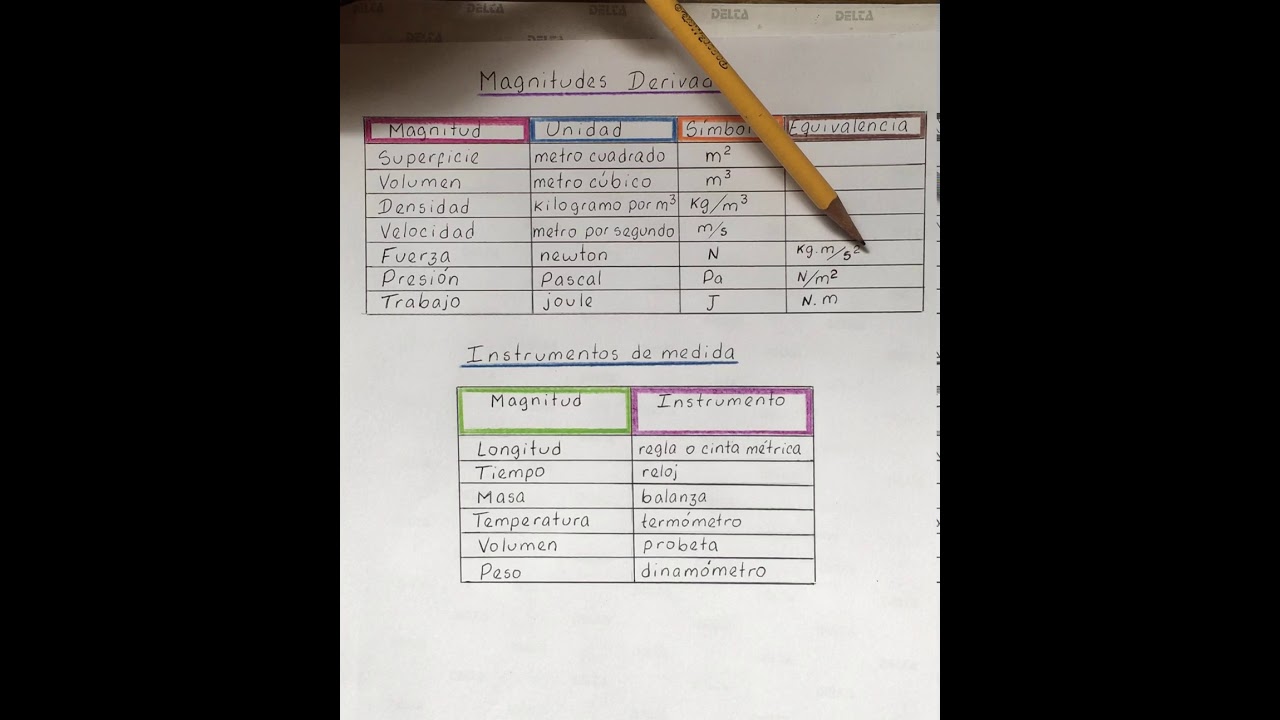 DELTA DELTA DELTA DELTA
DELTA DELTA
Magnitudes Derivad
Magnitud Unidad Símbol Equivalencia
Superficie metro cuadrado m²
Volumen metro cúbico m³
Densidad kilogramo por m³ Kg/m³
Velocidad metro por segundo m/s
Fuerza newton N Kg.m/s²
Presión Pascal Pa N/m²
Trabajo joule J N.m
Instrumentos de medida
Magnitud Instrumento
Longitud regla o cinta métrica
Tiempo reloj
Masa balanza
Temperatura termómetro
Volumen probeta
Peso dinamómetro